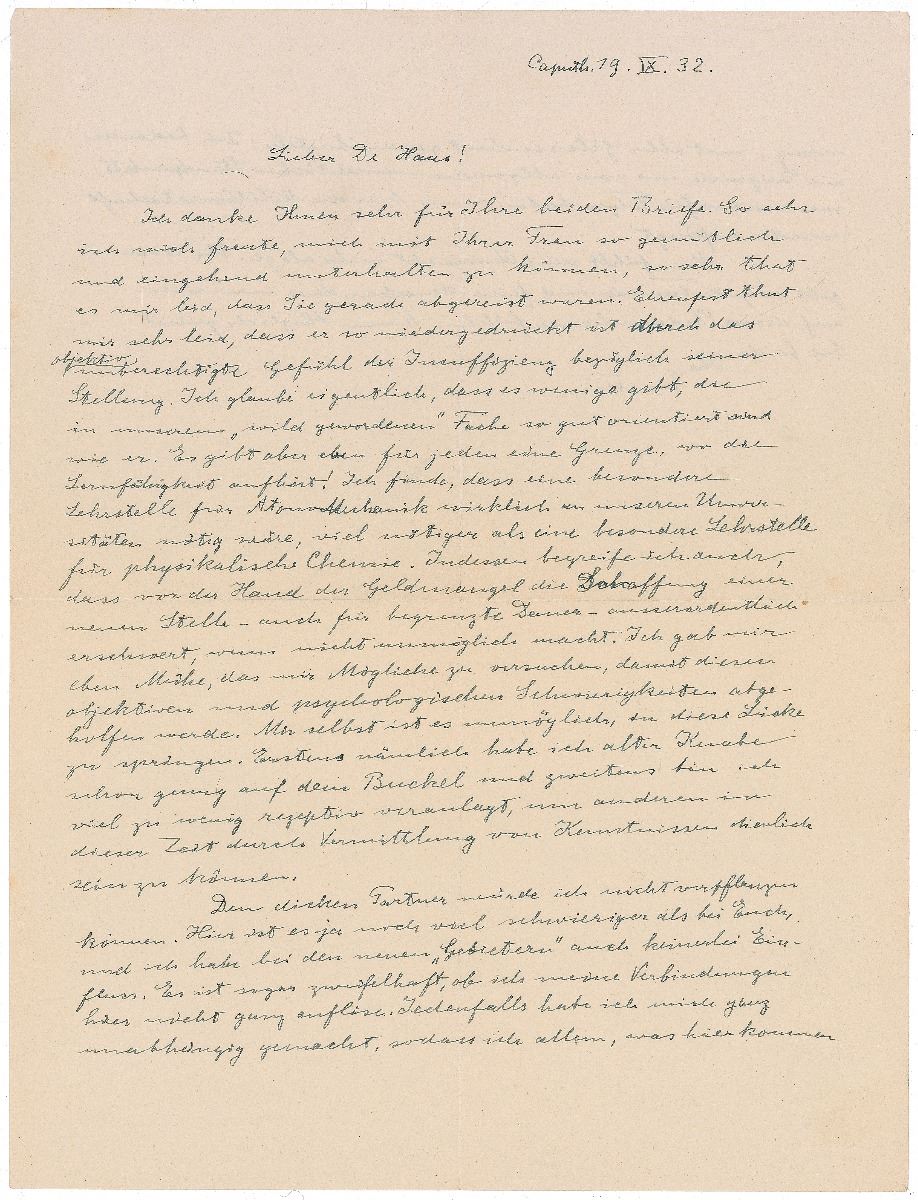 Caputh. 19. IX. 32.
Lieber De Haas!
Ich danke Ihnen sehr für Ihre beiden Briefe. So sehr
ich mich freute, mich mit Ihrer Frau so gemütlich
und eingehend unterhalten zu können, so sehr that
es mir leid, dass Sie gerade abgereist waren. Ehrenfest thut
mir sehr leid, dass er so niedergedrückt ist durch das
objektiv
unberechtigte Gefühl der Insuffizienz bezüglich seiner
Stellung. Ich glaube eigentlich, dass es wenige gibt, die
in unserem „wild gewordenen" Fache so gut orientiert sind
wie er. Es gibt aber eben für jeden eine Grenze, wo die
Lernfähigkeit aufhört! Ich finde, dass eine besondere
Lehrstelle für Atom-Mechanik wirklich an unseren Univer-
sitäten nötig wäre, viel nötiger als eine besondere Lehrstelle
für physikalische Chemie. Indessen begreife ich auch,
dass vor der Hand der Geldmangel die Schaffung einer
neuen Stelle - auch für begrenzte Dauer - ausserordentlich
erschwert, wenn nicht unmöglich macht. Ich gab mir
eben Mühe, das mir Mögliche zu versuchen, damit diesen
objektiven und psychologischen Schwierigkeiten abge-
holfen werde. Mir selbst ist es unmöglich, in diese Lücke
zu springen. Erstens nämlich habe ich alter Knabe
schon genug auf dem Buckel und zweitens bin ich
viel zu wenig rezeptiv veranlagt, um anderen in
dieser Zeit durch Vermittlung von Kenntnissen dienlich
sein zu können.
Den dicken Partner würde ich nicht verpflanzen
können. Hier ist es ja noch viel schwieriger als bei Euch,
und ich habe bei den neuen „Gebietern" auch keinerlei Ein-
fluss. Es ist sogar zweifelhaft, ob ich meine Verbindungen
hier nicht ganz auflöse. Jedenfalls habe ich mich ganz
unabhängig gemacht, sodass ich allem, was hier kommen